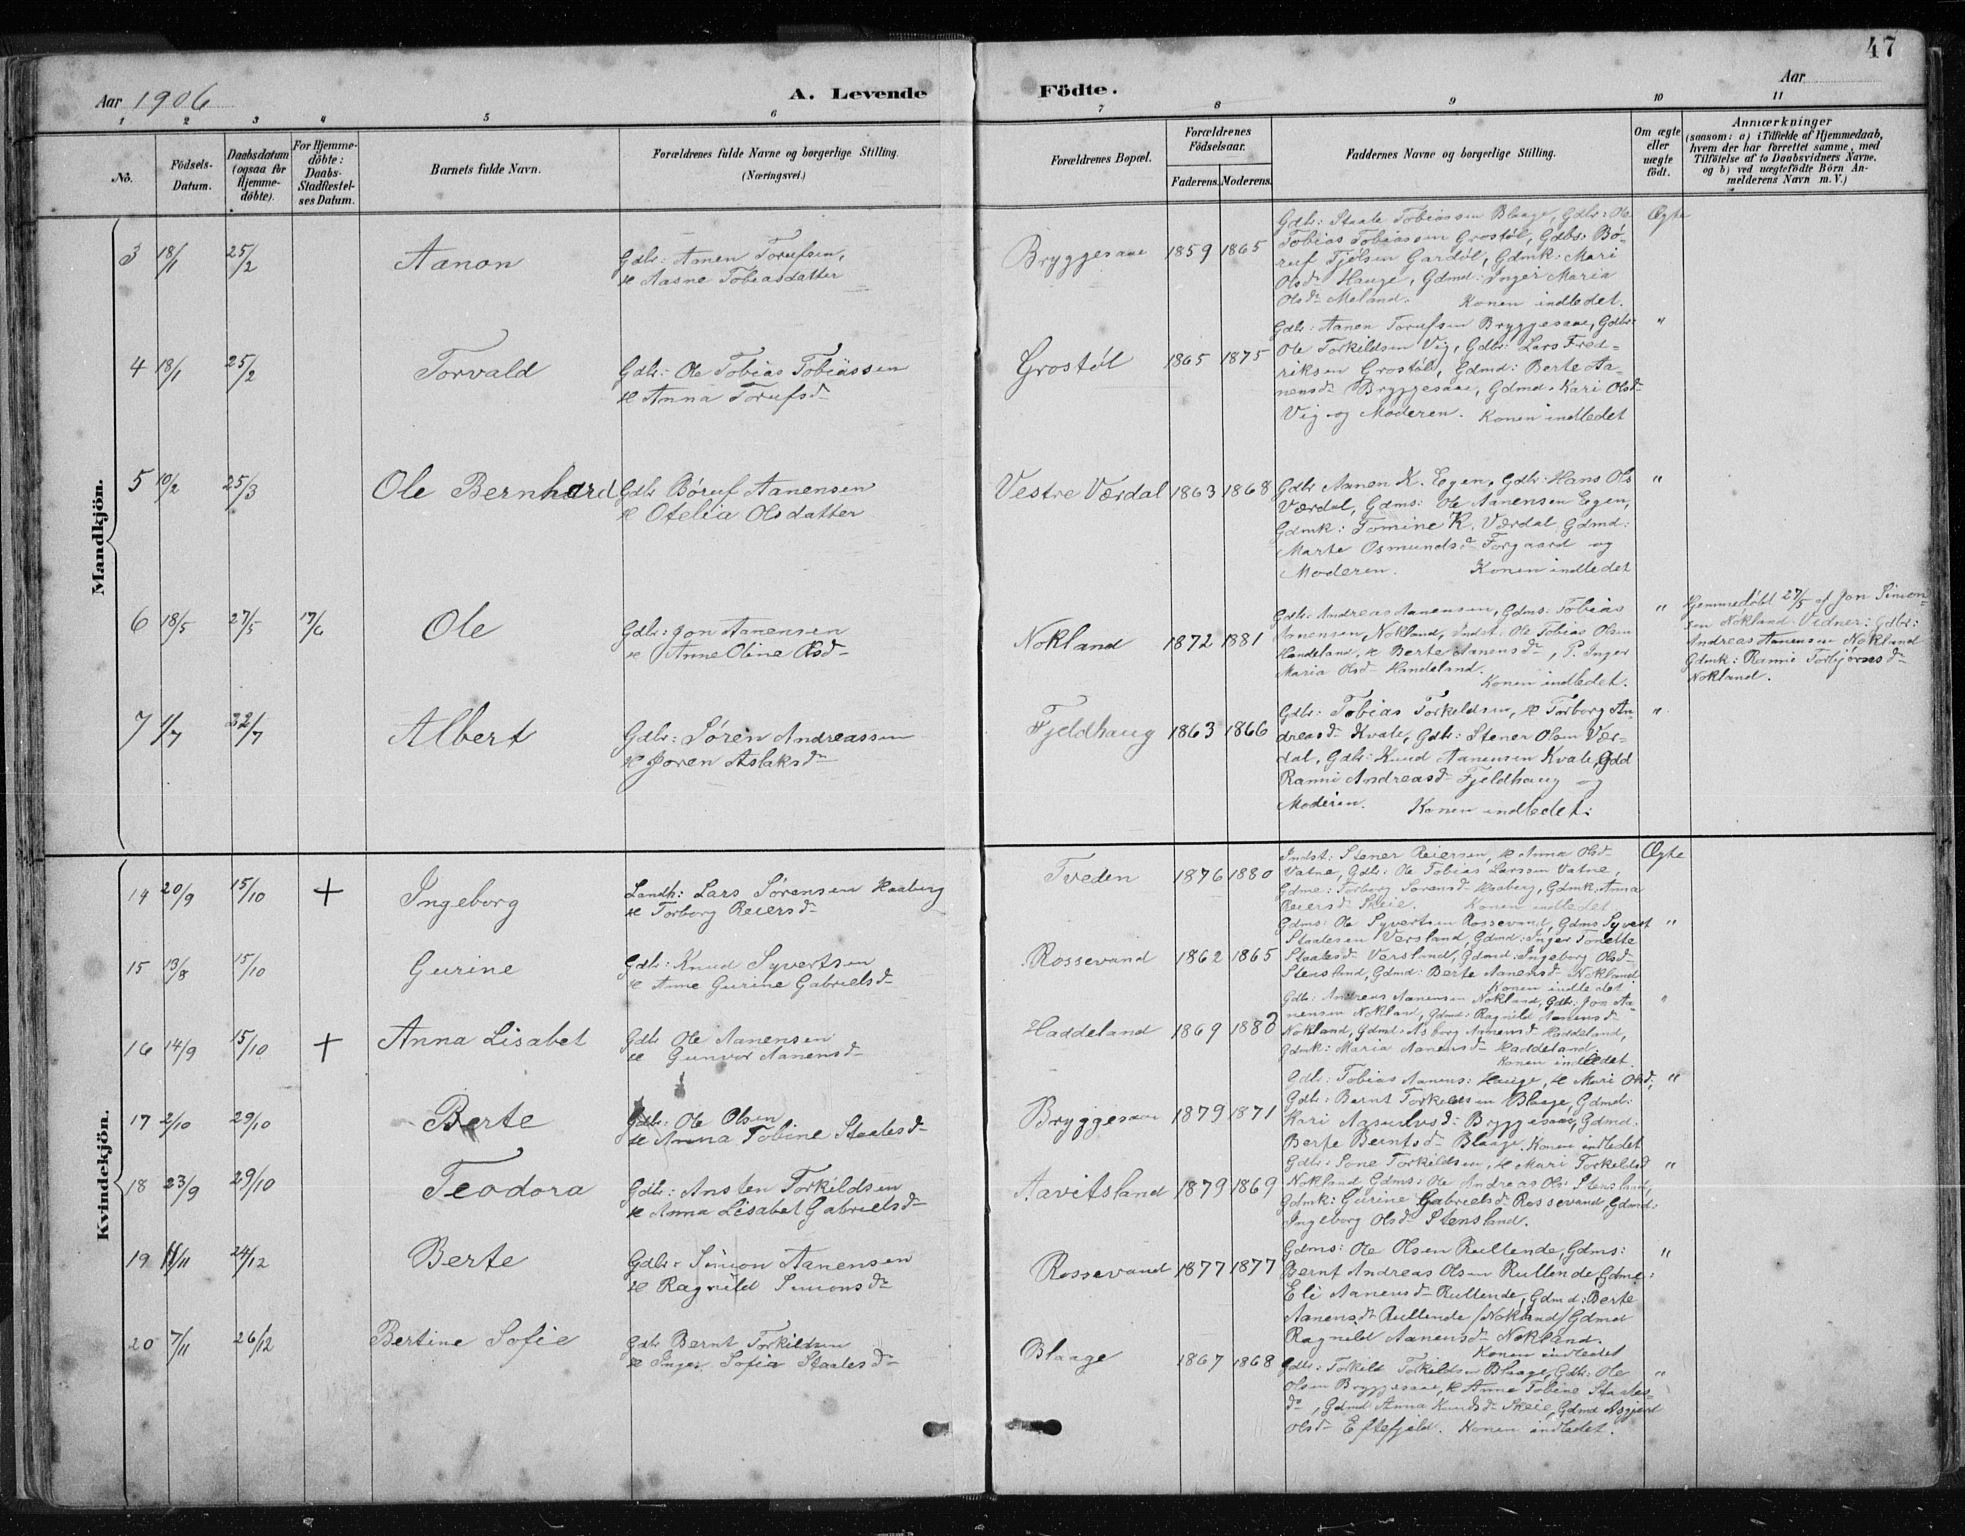 47
Aar 1906
A. Levende
Födte.
Aar
1 2 3 4 5 6 7 8 9 10 11
No.
Födsels-
Datum.
Daabsdatum
(ogsaa for
Hjemme-
döbte).
For Hjemme-
döbte:
Daabs-
Stadfæstel-
ses Datum.
Barnets fulde Navn.
Forældrenes fulde Navne og borgerlige Stilling.
(Næringsvei.)
Forældrenes Bopæl.
Forældrenes
Födselsaar.
Faderens. Moderens.
Faddernes Navne og borgerlige Stilling.
Om ægte
eller
uægte
födt.
Anmærkninger
(saasom: a) i Tilfælde af Hjemmedaab,
hvem der har forrettet samme, med
Tilföielse af to Daabsvidners Navne,
og b) ved uægtefödte Börn An-
melderens Navn m. V.)
Mandkjön.
3 18/1 25/2 Aanon
Gdbr: Aanen Torufsen,
& Aasne Tobiasdatter
Bryggesaae 1859 1865
Gdbr: Staale Tobiassen Blaage, Gdbr: Ole
Tobias Tobiassen Grostøl, Gdbr: Bø-
ruf Fjølsen Gardøl, Gdmk: Mari
Olsdr Hauge, Gdmd: Inger Maria
Olsdr Meland. Konen indledet.
Ægte
4 18/1 25/2 Torvald
Gdbr: Ole Tobias Tobiassen
& Anna Torufsdr
Grostøl 1865 1875
Gdbr: Aanen Torufsen Bryggesaae, Gdbr:
Ole Torkildsen Vig, Gdbr: Lars Fred-
riksen Grostøl, Gdmd: Berte Aa-
nensdr Bryggesaae, Gdmd: Kari Olsdr
Vig og Moderen. Konen indledet
"
5 10/2 25/3 Ole Bernhard
Gdbr Børuf Aanensen
& Otelia Olsdatter
Vestre Værdal 1863 1868
Gdbr Aanen K. Egen, Gdbr: Hans Ols
Værdal, Gdms: Ole Aanensen Egen,
Gdmk: Tomine K. Værdal, Gdmd:
Marte Osmundsdr Forgaard og
Moderen. Konen indledet
"
6 18/5 27/5 17/6 Ole
Gdbr: Jon Aanensen
& Anne Oline Olsdr
Nokland 1872 1881
Gdbr: Andreas Aanensen, Gdms: Tobias
Aanensen, Nokland, Indst: Ole Tobias Olsen
Handeland, & Berte Aanensdr, P. Inger
Maria Olsdr Handeland.
Konen indledet.
"
Hjemmedøbt 27/5 af Jon Simon-
sen Nokland Vidner: Gdbr:
Andreas Aanensen Nokland
Gdmk: Rannie Torbjørnsdr
Nokland.
7 1/7 22/7 Albert
Gdbr: Søren Andreassen
& Joren Aslaksdr
Fjeldhaug 1863 1866
Gdbr: Tobias Torkeldsen, & Torborg An-
dreasdr Kvale, Gdbr: Stener Olsen Vær-
dal, Gdbr: Knud Aanensen Kvale, Gdd
Ranni Andreasdr Fjeldhaug og
Moderen. Konen indledet.
"
Kvindekjön.
14 20/9 15/10 + Ingeborg
Landh: Lars Sørensen Haaberg
& Torborg Reiersdr
Tveden 1876 1880
Indst: Stener Reiersen, & Anna Olsdr
Vatne, Gdbr: Ole Tobias Larssen Vatne,
Gdme: Torborg Sørensdr Haaberg, Gdmk: Anna
Reiersdr Skeie. Konen indledet
Ægte
15 13/8 15/10 Gurine
Gdbr: Knud Syvertsen
& Anne Gurine Gabrielsdr
Rossevand 1862 1865
Gdms: Ole Syvertsen Rossevand, Gdms Syvert
Staalesen Versland, Gdmd: Inger Tonette
Staalesdr Versland, Gdmd: Ingeborg Olsdr
Stensland, Gdmd: Berte Aanensdr Nokland
Konen indledet
"
16 14/9 15/10 + Anna Lisabet
Gdbr Ole Aanensen
& Gunvor Aanensdr
Haddeland 1869 1880
Gdbr: Andreas Aanensen Nokland, Gdbr: Jon Aa-
nensen Nokland, Gdmd: Ragnild Aanensdr
Nokland, Gdmd: Asborg Aanensdr Haddeland,
Gdmk: Maria Aanensdr Haddeland.
Konen indledet.
"
17 2/10 29/10 Berte
Gdbr: Ole Olsen
& Anna Tobine Staalesdr
Bryggesaae 1879 1871
Gdbr: Tobias Aanens: Hauge, & Mari Olsdr,
Gdbr: Bernt Torkildsen Blaage, Gdmd:
Kari Aasulvsdr Bryggesaae, Gdmd:
Berte Berntsdr Blaage. Konen indledet
"
18 23/9 29/10 Teodora
Gdbr: Ansten Torkildsen
& Anna Lisabet Gabrielsdr
Aavitsland 1879 1869
Gdbr: Sone Torkildsen, & Mari Torkildsd
Nokland Gdms: Ole Andreas Ols: Stensland,
Gdmk: Gurine Gabrielsdr Rossevand, Gdmd:
Ingeborg Olsdr Stensland.
"
19 11/11 24/12 Berte
Gdbr: Simon Aanensen
& Ragnild Simonsdr
Rossevand 1877 1877
Gdms: Ole Olsen Rullende, Gdms:
Bernt Andreas Olsen Rullende, Gdme:
Eli Aanensdr Rullende, Gdmd: Berte
Aanensdr Rullende /Nokland/ Gdmd
Ragnild Aanensdr Nokland.
Konen indledet
"
20 7/11 26/12 Bertine Sofie
Gdbr Bernt Torkildsen
& Inger Sofia Staalesdr
Blaage 1867 1868
Gdbr: Torkild Torkildsen Blaage, Gdbr: Ole
Olsen Bryggesaae, & Anne Tobine Staales-
dr, Gdmd Anna Knudsdr Skeie, Gdmd Asgjerd
Olsdr Eftefjeld. Konen indledet.
"